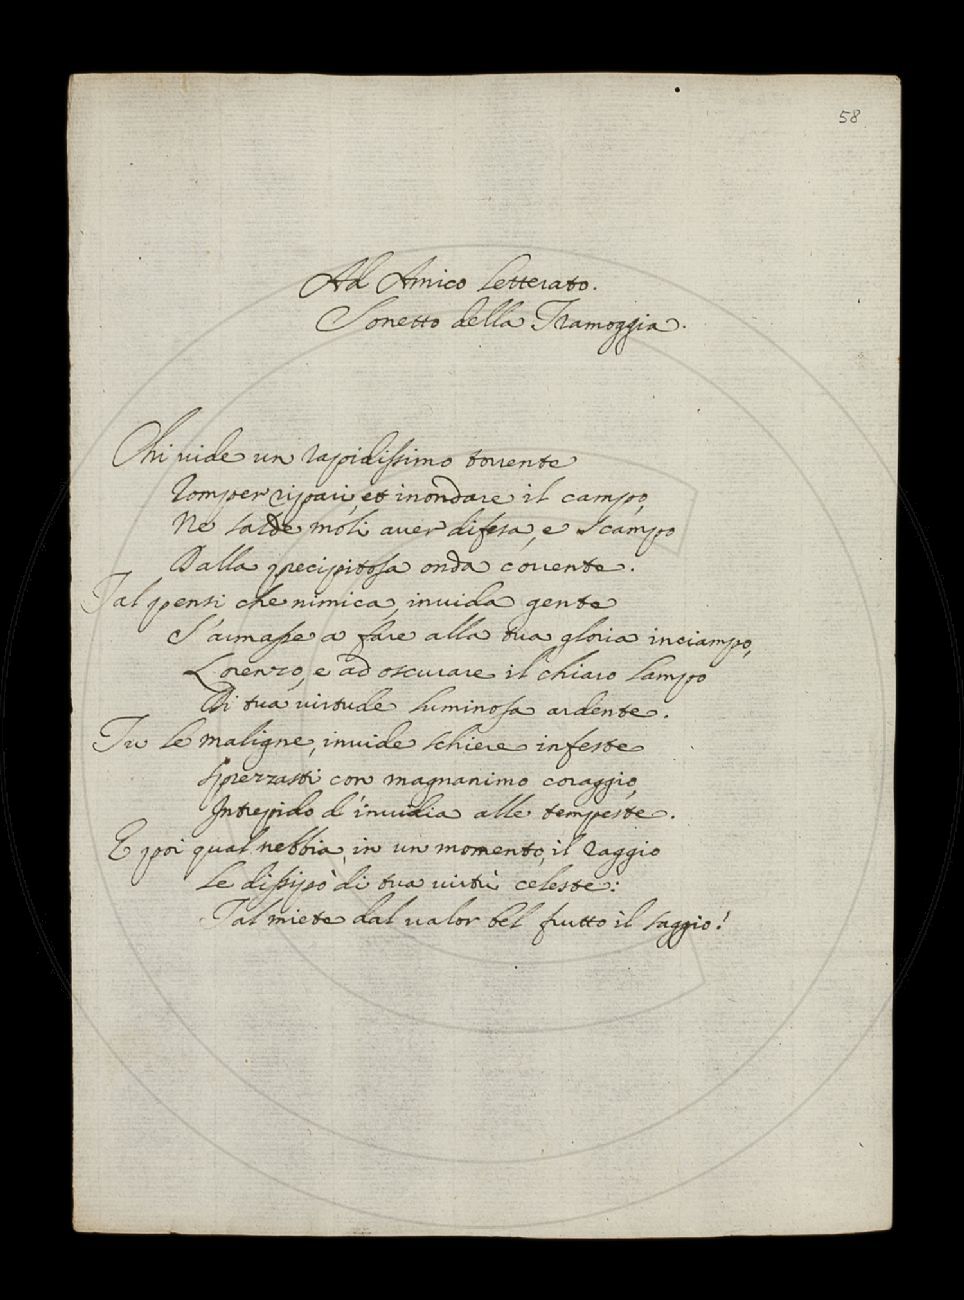 58
Ad Amico Letterato.
Sonetto della Tramoggia.
Chi vide un rapidissimo torrente
Romper ripari, et inondare il campo,
Ne salde moli aver difesa, e scampo
Dalla precipitosa onda corrente.
Tal pensi che nimica, invida gente
S'armasse a fare alla tua gloria inciampo,
Lorenzo, e ad oscurare il chiaro lampo
Di tua virtude luminosa ardente.
Tu le maligne, invide schiere infeste
Sprezzasti con magnanimo coraggio,
Intrepido d'invidia alle tempeste.
E poi qual nebbia, in un momento, il raggio
Le dissipò di tua virtù celeste:
Tal miete dal valor bel frutto il saggio!